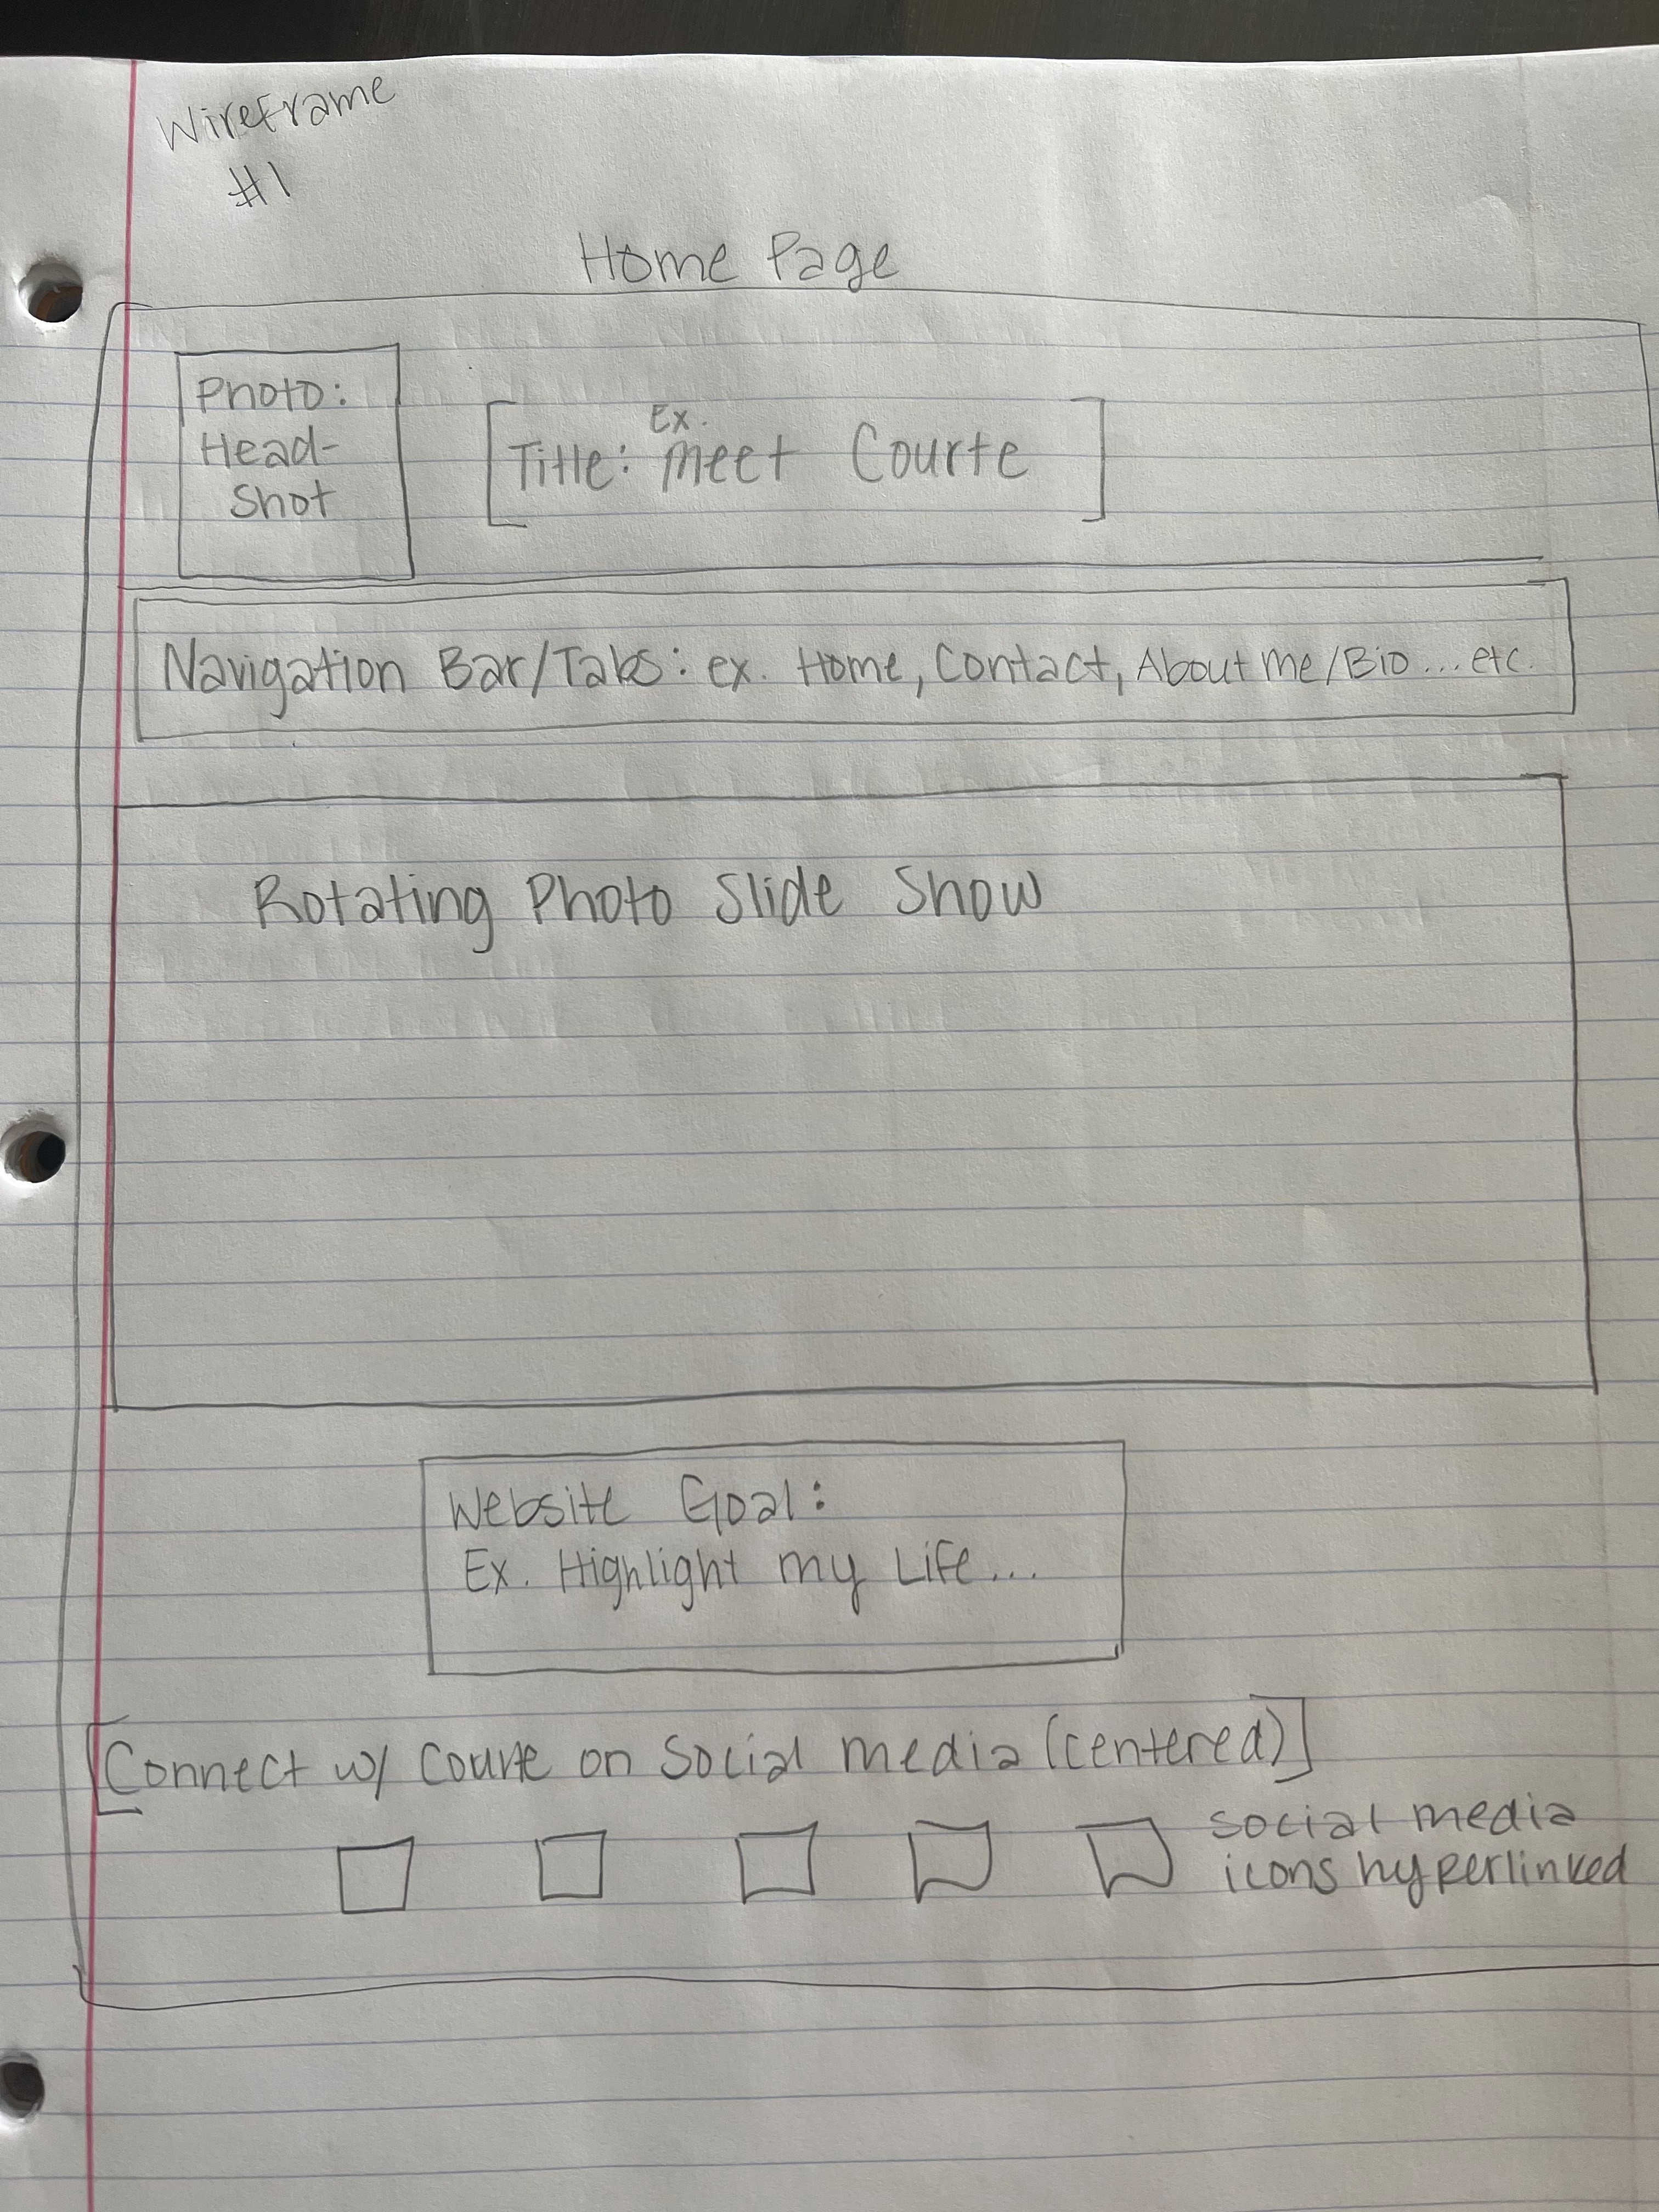 Wireframe
#1
Home Page
Photo:
Head-
Shot
Ex.
[Title: Meet Courte]
Navigation Bar/Tabs: ex. Home, Contact, About Me/Bio... etc.
Rotating Photo Slide Show
Website Goal:
Ex. Highlight my Life...
[Connect w/ Courte on Social Media (centered)]
social media
icons hyperlinked